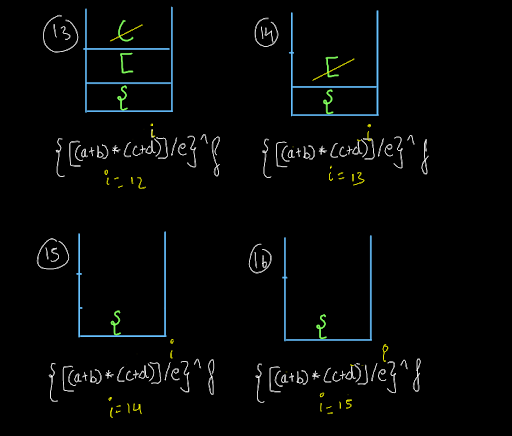 13
(
[
{
i
{[(a+b)*(c+d)]/e}^f
i=12
14
[
{
i
{[(a+b)*(c+d)]/e}^f
i=13
15
{
i
{[(a+b)*(c+d)]/e}^f
i=14
16
{
i
{[(a+b)*(c+d)]/e}^f
i=15